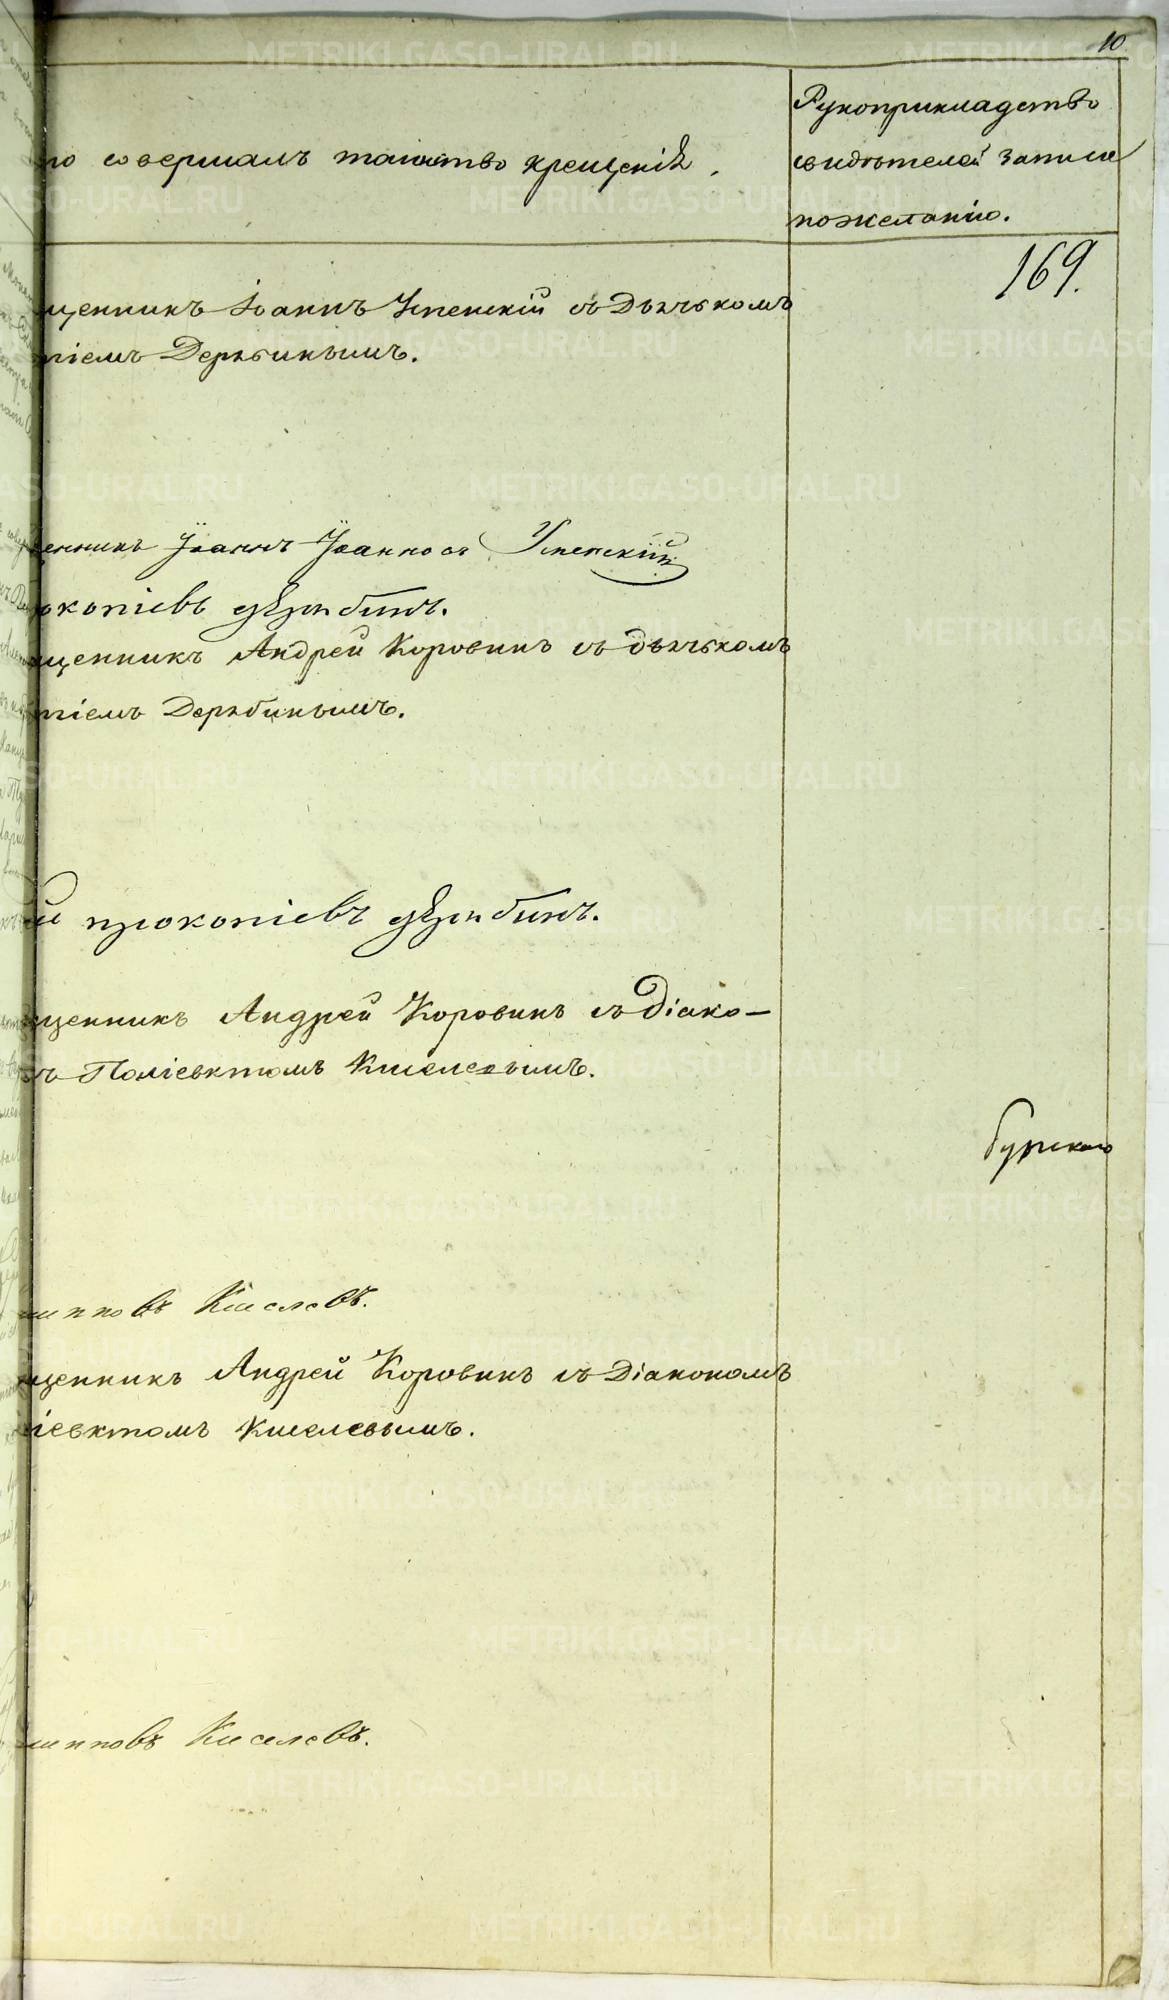 10
Рукоприкладство
то совершалъ таинство крещенія.
свидѣтелей записи
по желанію.
169.
щенникъ Іоаннъ Успенскій съ Дьячкомъ
піемъ Дерябинымъ.
щенникъ Іоаннъ Іоанновъ Успенскій
окопіевъ Дерябинъ.
щенникъ Андрей Коровинъ съ дьячкомъ
піемъ Дерябинымъ.
й прокопіевъ Дерябинъ.
щенникъ Андрей Коровинъ съ Діако-
ъ Поліевктомъ Киселевымъ.
бурскаго
липповъ Киселевъ.
щенникъ Андрей Коровинъ съ Діакономъ
ліевктомъ Киселевымъ.
липповъ Киселевъ.